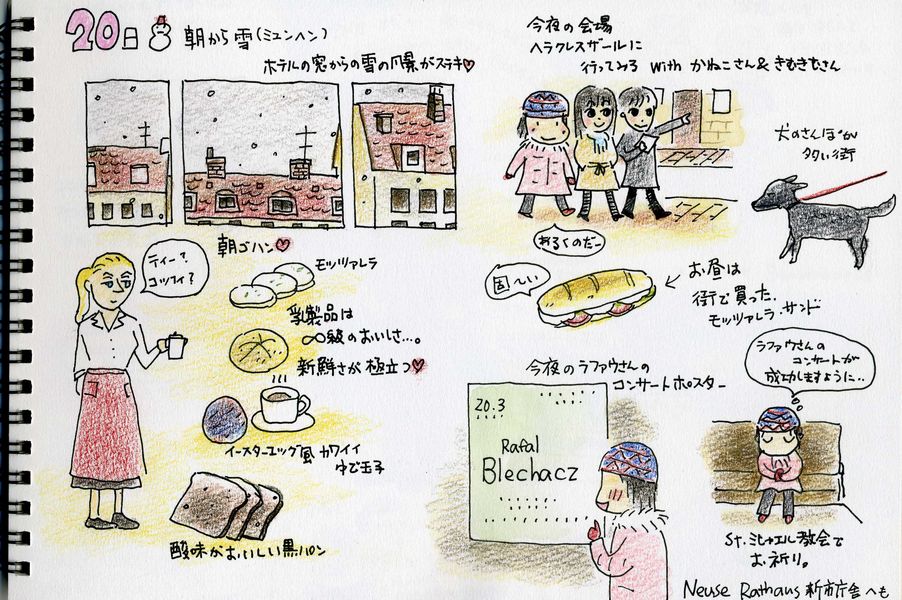 20日 朝から雪(ミュンヘン)
ホテルの窓からの雪の風景がステキ♡
朝ゴハン♡
ティー?
コッフィ?
モッツァレラ
乳製品は
∞級のおいしさ…。
新鮮さが極立つ♡
イースターエッグ風カワイイ
ゆで玉子
酸味がおいしい黒パン
今夜の会場
ヘラクレスザールに
行ってみる with かねこさん&きむきむさん
あるくのだー
犬のさんぽが
多い街
固〜い
← お昼は
街で買った
モッツァレラ・サンド
今夜のラファウさんの
コンサートポスター
20.3
Rafal
Blechacz
ラファウさんの
コンサートが
成功しますように..
St.ミヒャエル教会で
お祈り。
Neuse Rathaus 新市庁舎へも